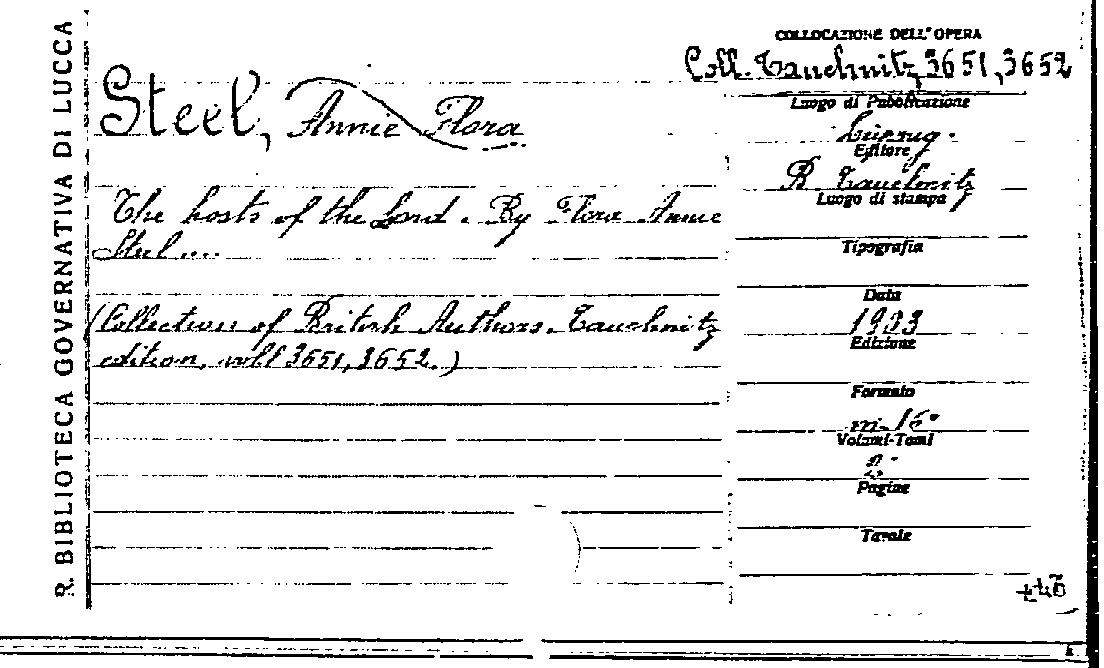 R. BIBLIOTECA GOVERNATIVA DI LUCCA
COLLOCAZIONE DELL'OPERA
Coll. Tauchnitz, 3651, 3652
Steel, Annie Flora
The hosts of the Lord. By Flora Annie
Steel....
(Collection of British Authors. Tauchnitz
edition, voll 3651, 3652.)
Luogo di Pubblicazione
Leipzig.
Editore
B. Tauchnitz
Luogo di stampa
Tipografia
Data
Edizione
Formato
in-16°
Volumi-Tomi
2.
Pagine
Tavole